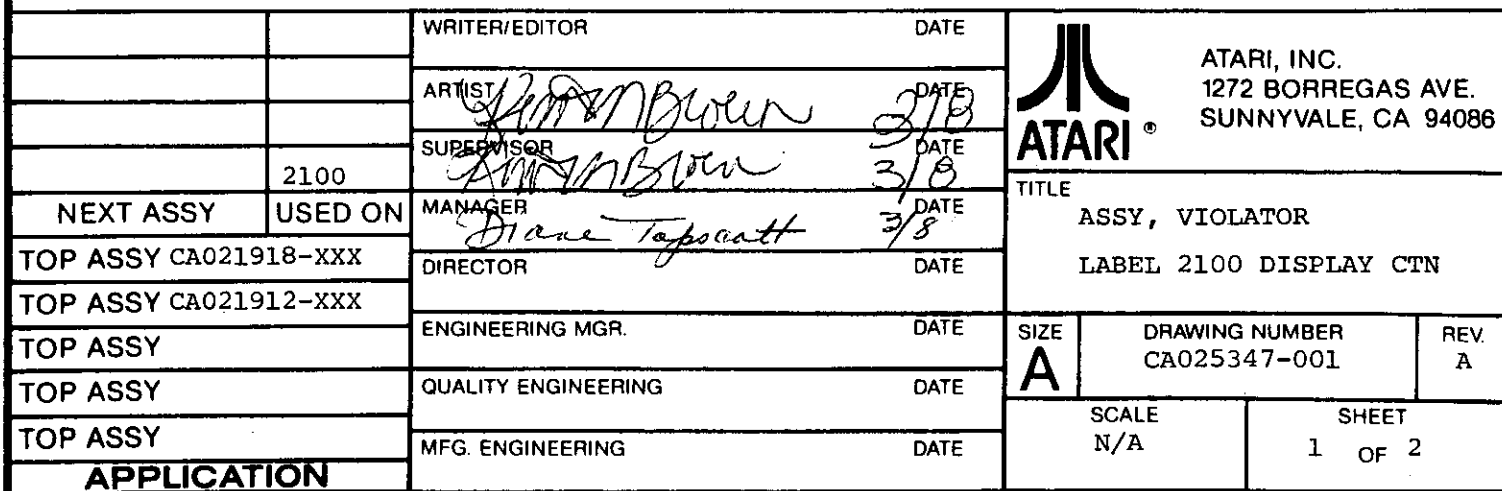 2100
NEXT ASSY USED ON
TOP ASSY CA021918-XXX
TOP ASSY CA021912-XXX
TOP ASSY
TOP ASSY
TOP ASSY
APPLICATION
WRITER/EDITOR DATE
ARTIST DATE
Brown 3/8
SUPERVISOR DATE
Brown 3/8
MANAGER DATE
Diane Tapscott 3/8
DIRECTOR DATE
ENGINEERING MGR. DATE
QUALITY ENGINEERING DATE
MFG. ENGINEERING DATE
ATARI ®
ATARI, INC.
1272 BORREGAS AVE.
SUNNYVALE, CA 94086
TITLE
ASSY, VIOLATOR
LABEL 2100 DISPLAY CTN
SIZE
A
DRAWING NUMBER
CA025347-001
REV.
A
SCALE
N/A
SHEET
1 OF 2